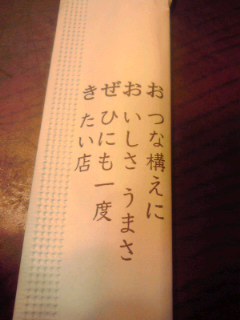 おつな構えに
おいしさうまさ
ぜひにも一度
きたい店